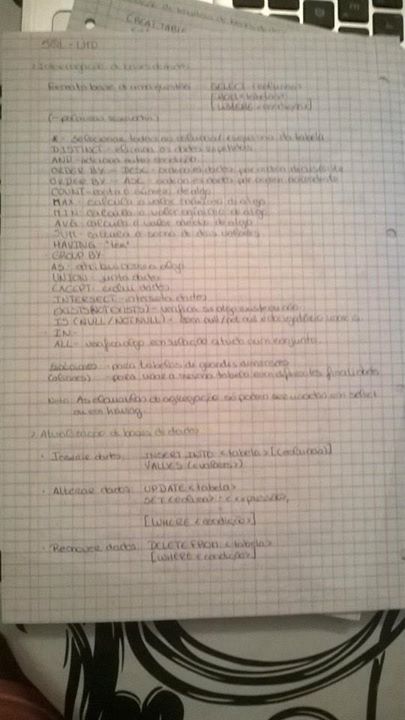 CREATE TABLE
SQL - LMD
Formato base de uma questão: SELECT <colunas>
[FROM <tabelas>]
[WHERE <condição>]
* - selecionar todas as colunas/ da tabela
DISTINCT - elimina os dados repetidos
AND - adiciona outra condição
ORDER BY - DESC - ordena os dados por ordem decrescente
ORDER BY - ASC - ordena os dados por ordem
COUNT - conta o número de algo
MAX - calcula o valor máximo de algo
MIN - calcula o valor mínimo de algo
AVG - calcula o valor médio de algo
SUM - calcula a soma de
HAVING - "tem"
GROUP BY
AS - atribui nome a algo
UNION - junta dados
EXCEPT - exclui dados
INTERSECT - interseta dados
EXISTS (NOT EXISTS) - verifica se algo existe ou não
IS (NULL / NOT NULL) -
IN -
ALL - verifica algo em relação a tudo num conjunto.
- para tabelas de grandes dimensões
- para usar a mesma tabela com diferentes finalidades
Nota: As de agregação só podem ser usadas em select
ou em having.
2. Atualização de bases de dados
• Inserir dados: INSERT INTO <tabela> [<colunas>]
VALUES (<valores>)
• Alterar dados: UPDATE <tabela>
SET <coluna> = <expressão>,
[WHERE <condição>]
• Remover dados: DELETE FROM <tabela>
[WHERE <condição>]